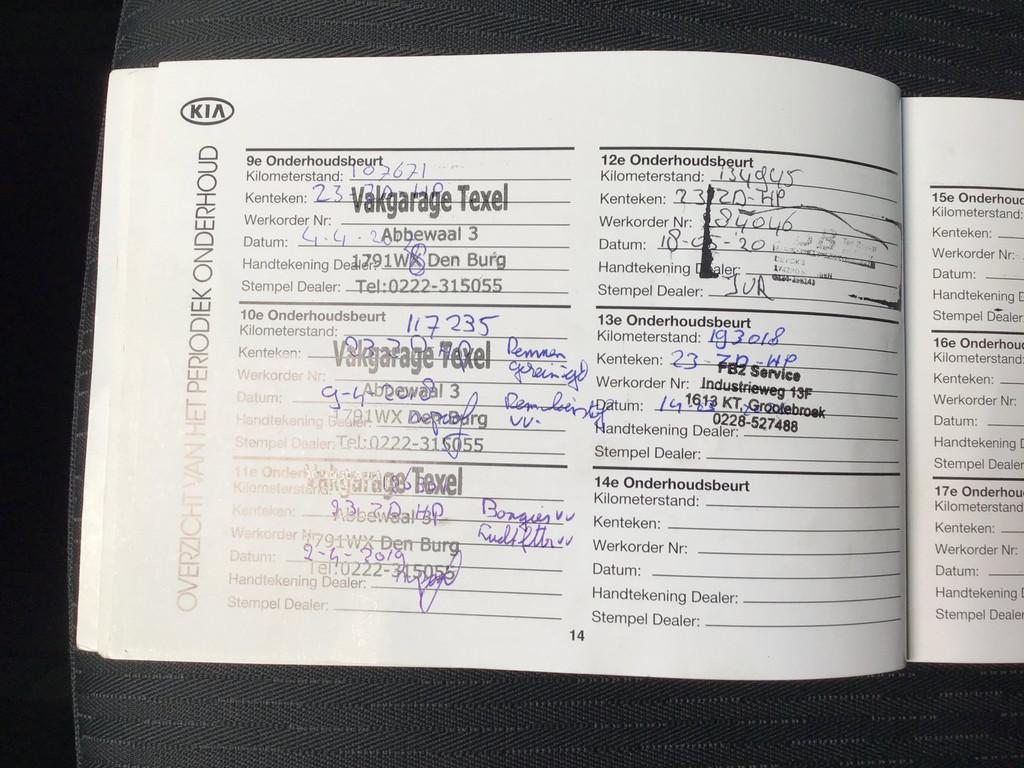 KIA
OVERZICHT VAN HET PERIODIEK ONDERHOUD
9e Onderhoudsbeurt
Kilometerstand: 107671
Kenteken: 23-ZD-HP
Werkorder Nr:
Datum: 4-4-2018
Handtekening Dealer:
Stempel Dealer:
Vakgarage Texel
Abbewaal 3
1791WX Den Burg
Tel:0222-315055
10e Onderhoudsbeurt
Kilometerstand: 117235
Kenteken: 23 ZD HP
Werkorder Nr:
Datum: 9-4-2018
Handtekening Dealer:
Stempel Dealer:
Vakgarage Texel
Abbewaal 3
1791WX Den Burg
Tel:0222-315055
Remmen
gereinigd
vv.
11e Onderhoudsbeurt
Kilometerstand:
Kenteken: 23 ZD HP
Werkorder Nr:
Datum: 2-4-2019
Handtekening Dealer:
Stempel Dealer:
Vakgarage Texel
Abbewaal 3
1791WX Den Burg
Tel:0222-315055
Bougies vv
12e Onderhoudsbeurt
Kilometerstand: 134945
Kenteken: 23 ZD-HP
Werkorder Nr: 84046
Datum: 18-05-'20
Handtekening Dealer:
Stempel Dealer:
13e Onderhoudsbeurt
Kilometerstand: 193018
Kenteken: 23-ZD-HP
Werkorder Nr:
Datum:
Handtekening Dealer:
Stempel Dealer:
FB2 Service
Industrieweg 13F
1613 KT, Grootebroek
0228-527488
14e Onderhoudsbeurt
Kilometerstand:
Kenteken:
Werkorder Nr:
Datum:
Handtekening Dealer:
Stempel Dealer:
14
15e Onderhoud
Kilometerstand:
Kenteken:
Werkorder Nr:
Datum:
Handtekening D
Stempel Dealer
16e Onderhou
Kilometerstand
Kenteken:
Werkorder Nr:
Datum:
Handtekening D
Stempel Dealer
17e Onderhou
Kilometerstand
Kenteken:
Werkorder Nr:
Datum:
Handtekening D
Stempel Dealer